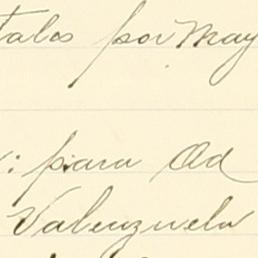 tales por May
: para Ad
Valenzuela